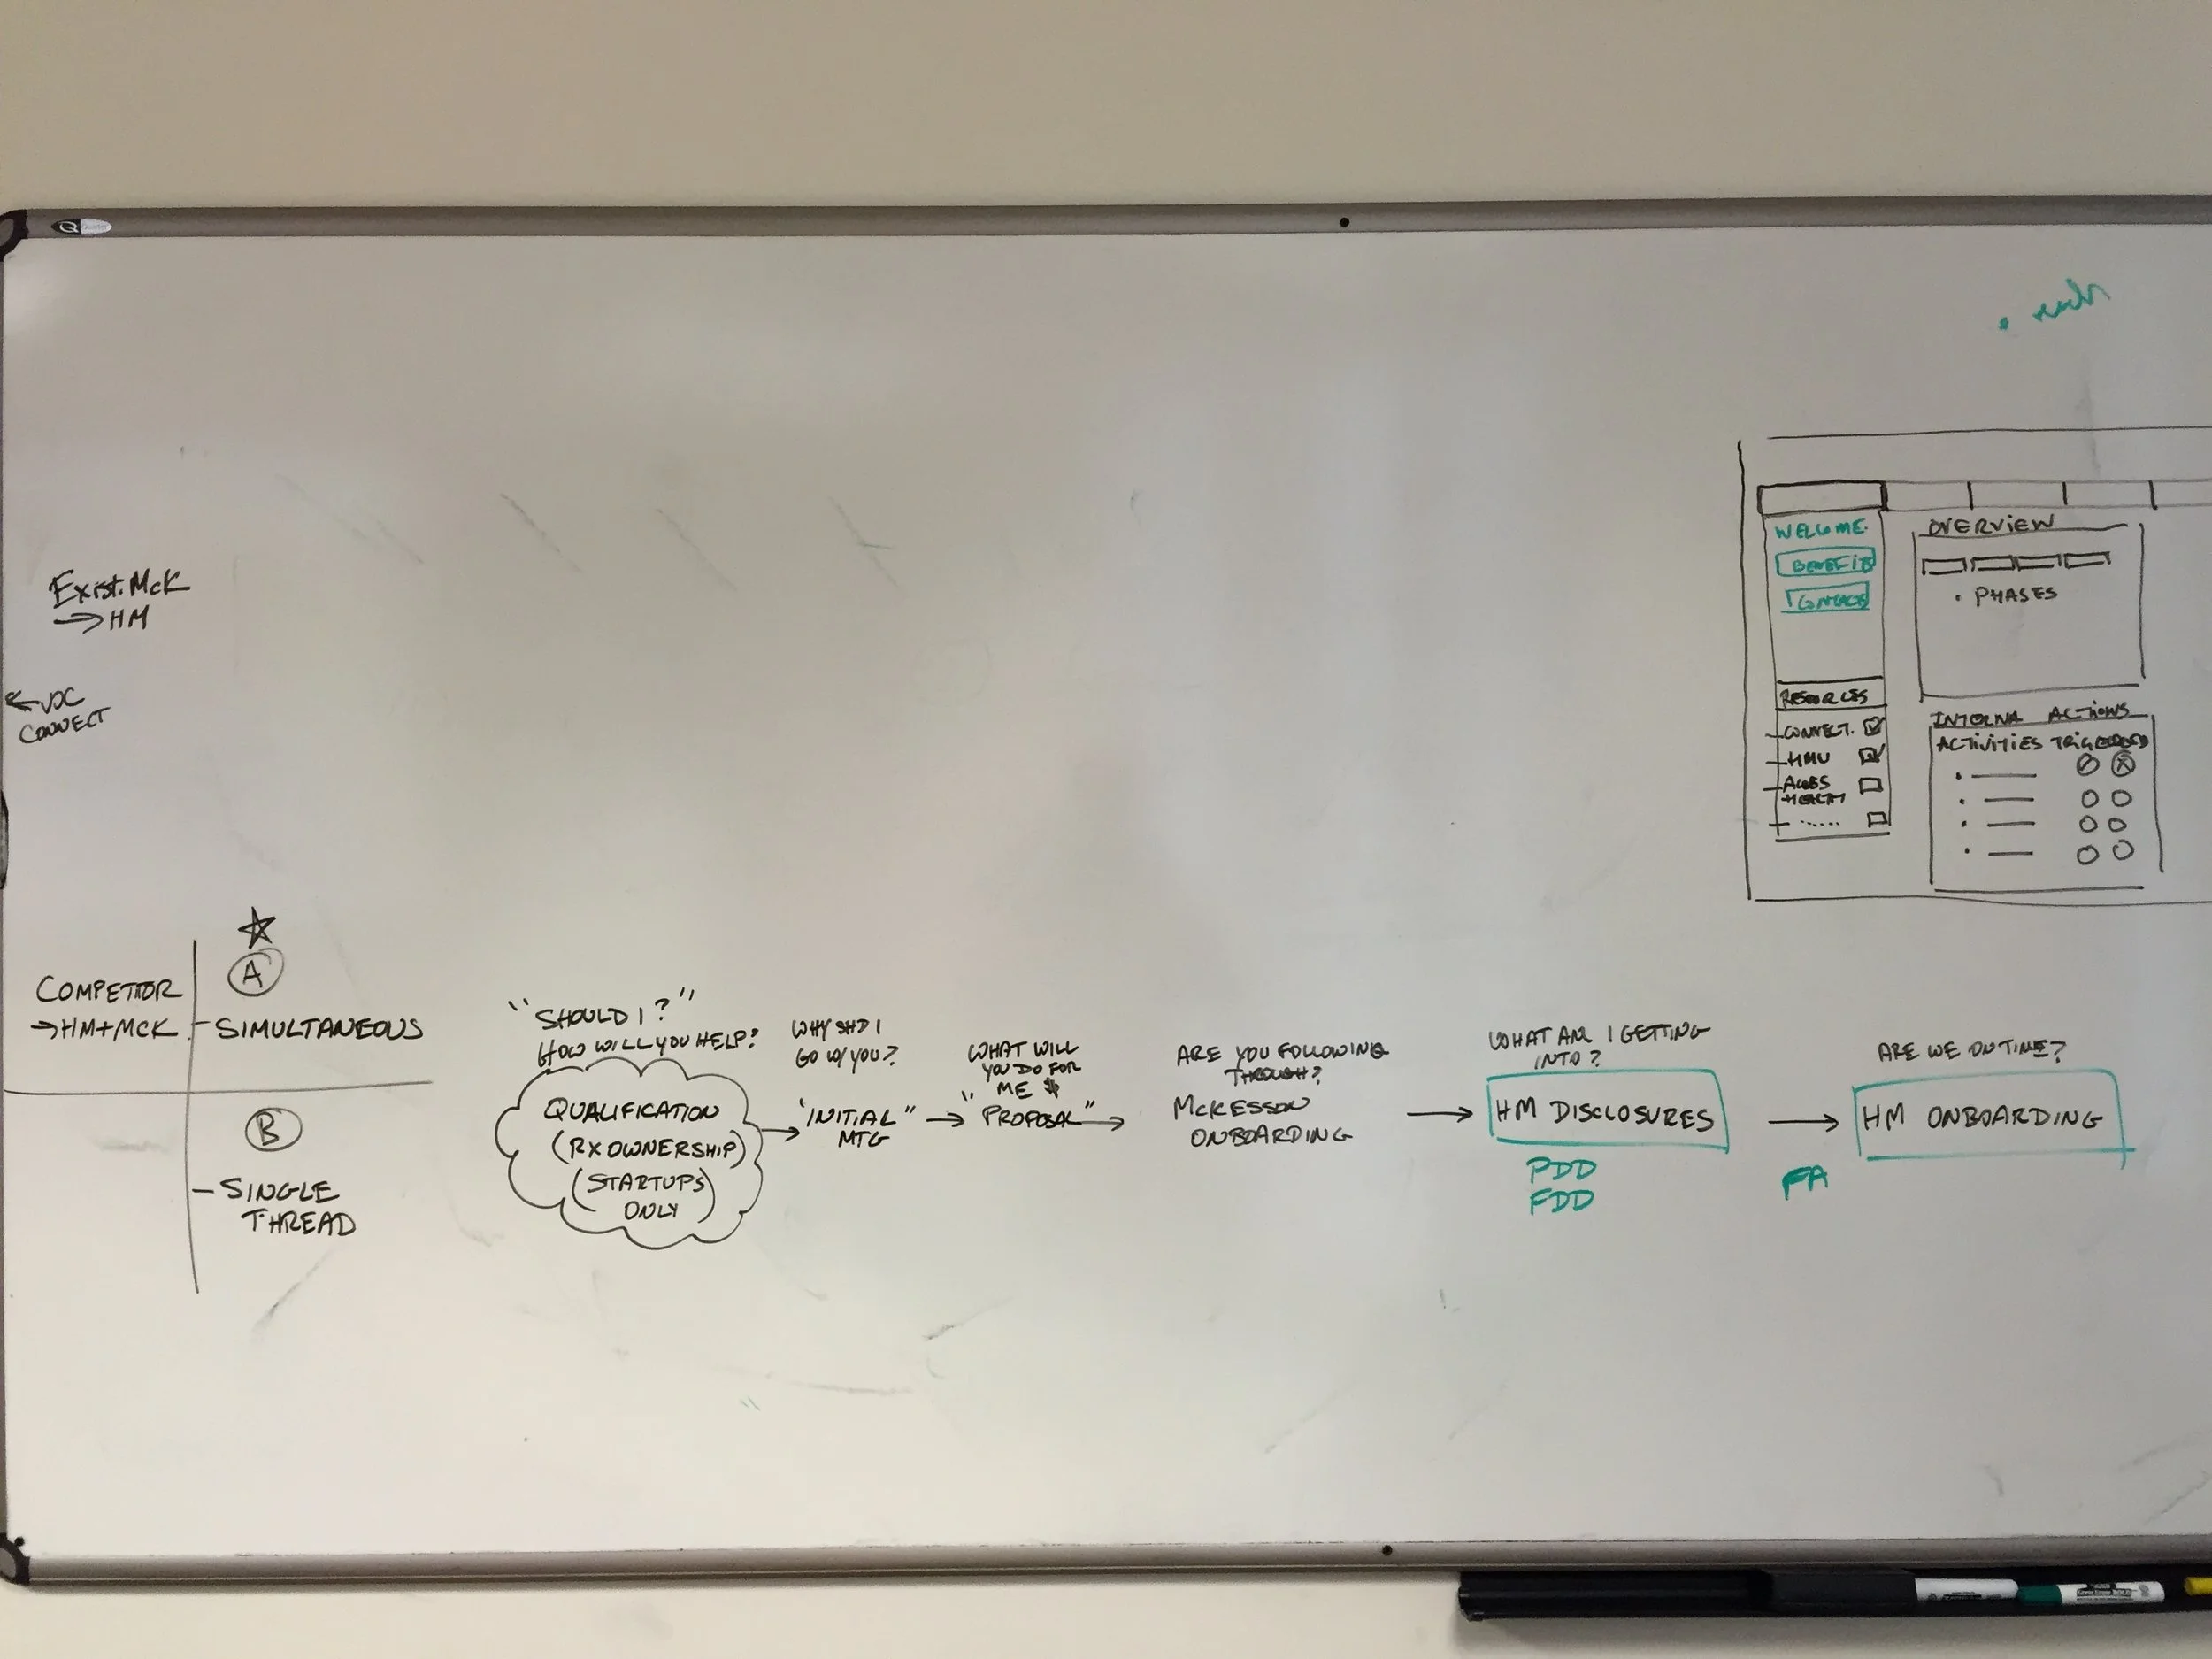 Exist. McK
→ HM
← VOC
CONNECT
COMPETITOR
→ HM + McK
A
- SIMULTANEOUS
B
- SINGLE
THREAD
"SHOULD I?"
HOW WILL YOU HELP?
QUALIFICATION
(RX OWNERSHIP)
(STARTUPS
ONLY)
WHY SHD I
GO W/ YOU?
→ "INITIAL"
MTG
WHAT WILL
YOU DO FOR
ME $
→ "PROPOSAL" →
ARE YOU FOLLOWING
THROUGH?
McKESSON
ONBOARDING
→
WHAT AM I GETTING
INTO?
HM DISCLOSURES
PDD
FDD
→
FA
ARE WE ON TIME?
HM ONBOARDING
WELCOME
BENEFITS
CONTACTS
RESOURCES
- CONNECT.
- HMU
HEALTH
- ......
OVERVIEW
• PHASES
INTERNA ACTIONS
ACTIVITIES TRIGGERED
Q